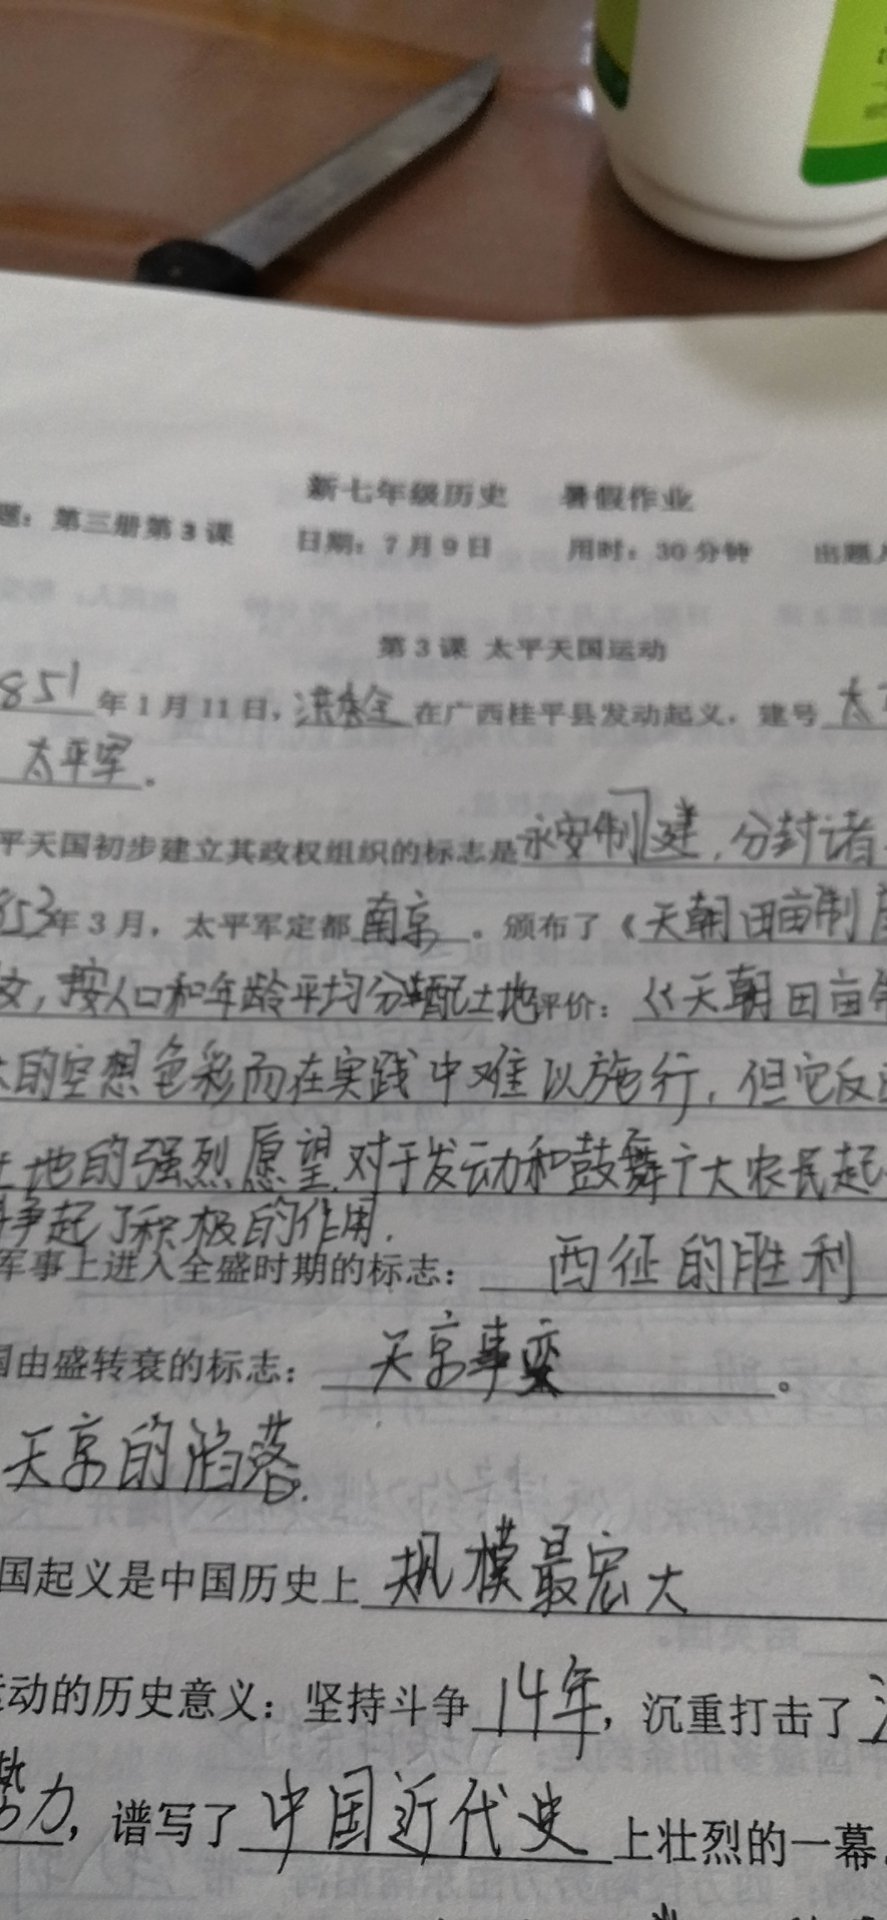 新七年级历史 暑假作业
题：第三册第3课 日期：7月9日 用时：30分钟 出题人
第3课 太平天国运动
851年1月11日，洪秀全在广西桂平县发动起义，建号太
太平军。
平天国初步建立其政权组织的标志是永安制建，分封诸
853年3月，太平军定都南京。颁布了《天朝田亩制度
按人口和年龄平均分配土地评价：《天朝田亩制
的空想色彩而在实践中难以施行，但它反
土地的强烈愿望对于发动和鼓舞广大农民起
争起了积极的作用.
军事上进入全盛时期的标志：西征的胜利
国由盛转衰的标志：天京事变。
天京的陷落.
国起义是中国历史上规模最宏大
运动的历史意义：坚持斗争14年，沉重打击了
势力，谱写了中国近代史上壮烈的一幕